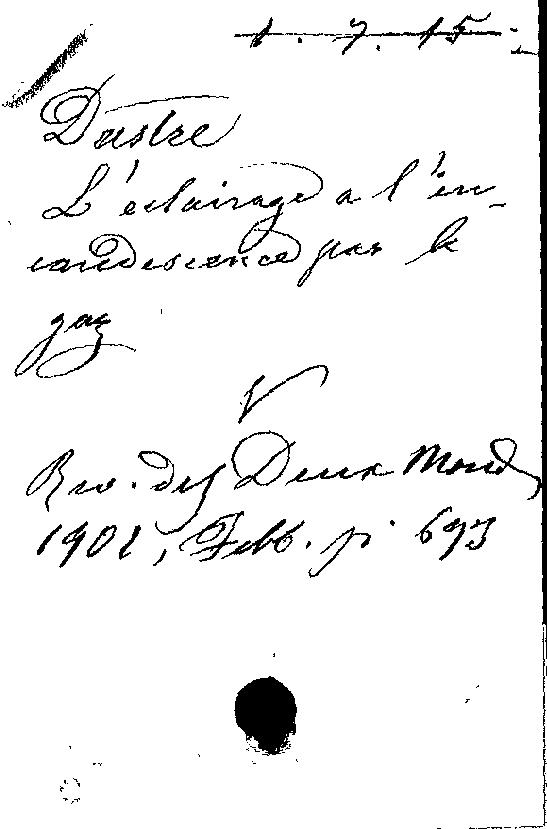 1. 7. 15.
Dastre
L'éclairage a l'in-
candescence par le
gaz
V
Rev. des Deux Mond
1901, Febb. p. 693